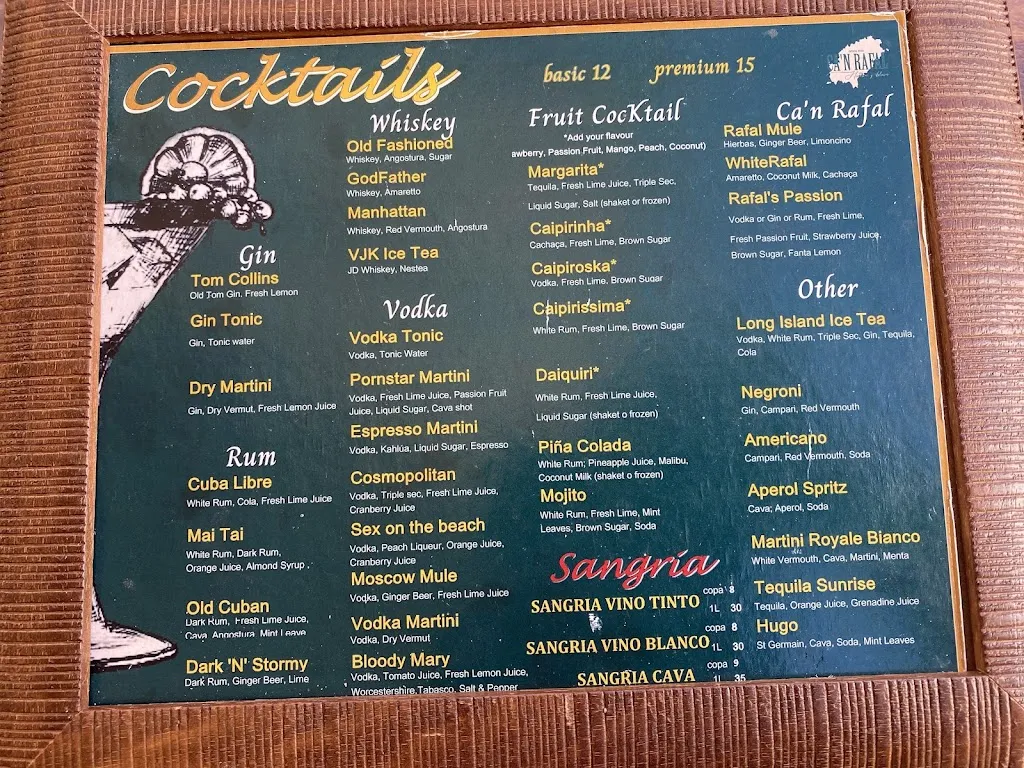 Cocktails
basic 12
premium 15
CA'N RAFAL
Gin
Tom Collins
Old Tom Gin. Fresh Lemon
Gin Tonic
Gin, Tonic water
Dry Martini
Gin, Dry Vermut, Fresh Lemon Juice
Rum
Cuba Libre
White Rum, Cola, Fresh Lime Juice
Mai Tai
White Rum, Dark Rum,
Orange Juice, Almond Syrup .
Old Cuban
Dark Rum, Fresh Lime Juice,
Cava, Angostura, Mint Leave
Dark 'N' Stormy
Dark Rum, Ginger Beer, Lime
Whiskey
Old Fashioned
Whiskey, Angostura, Sugar
GodFather
Whiskey, Amaretto
Manhattan
Whiskey, Red Vermouth, Angostura
VJK Ice Tea
JD Whiskey, Nestea
Vodka
Vodka Tonic
Vodka, Tonic Water
Pornstar Martini
Vodka, Fresh Lime Juice, Passion Fruit
Juice, Liquid Sugar, Cava shot
Espresso Martini
Vodka, Kahlúa, Liquid Sugar, Espresso
Cosmopolitan
Vodka, Triple sec, Fresh Lime Juice,
Cranberry Juice
Sex on the beach
Vodka, Peach Liqueur, Orange Juice,
Cranberry Juice
Moscow Mule
Vodka, Ginger Beer, Fresh Lime Juice
Vodka Martini
Vodka, Dry Vermut
Bloody Mary
Vodka, Tomato Juice, Fresh Lemon Juice,
Worcestershire,Tabasco, Salt & Pepper
Fruit CocKtail
*Add your flavour
awberry, Passion Fruit, Mango, Peach, Coconut)
Margarita*
Tequila, Fresh Lime Juice, Triple Sec,
Liquid Sugar, Salt (shaket or frozen)
Caipirinha*
Cachaça, Fresh Lime, Brown Sugar
Caipiroska*
Vodka, Fresh Lime, Brown Sugar
Caipirissima*
White Rum, Fresh Lime, Brown Sugar
Daiquiri*
White Rum, Fresh Lime Juice,
Liquid Sugar (shaket o frozen)
Piña Colada
White Rum; Pineapple Juice, Malibu,
Coconut Milk (shaket o frozen)
Mojito
White Rum, Fresh Lime, Mint
Leaves, Brown Sugar, Soda
Sangría
SANGRIA VINO TINTO copa 8
1L 30
SANGRIA VINO BLANCO copa 8
1L 30
SANGRIA CAVA copa 9
1L 35
Ca'n Rafal
Rafal Mule
Hierbas, Ginger Beer, Limoncino
WhiteRafal
Amaretto, Coconut Milk, Cachaça
Rafal's Passion
Vodka or Gin or Rum, Fresh Lime,
Fresh Passion Fruit, Strawberry Juice,
Brown Sugar, Fanta Lemon
Other
Long Island Ice Tea
Vodka, White Rum, Triple Sec, Gin, Tequila,
Cola
Negroni
Gin, Campari, Red Vermouth
Americano
Campari, Red Vermouth, Soda
Aperol Spritz
Cava; Aperol, Soda
Martini Royale Bianco
White Vermouth, Cava, Martini, Menta
Tequila Sunrise
Tequila, Orange Juice, Grenadine Juice
Hugo
St Germain, Cava, Soda, Mint Leaves